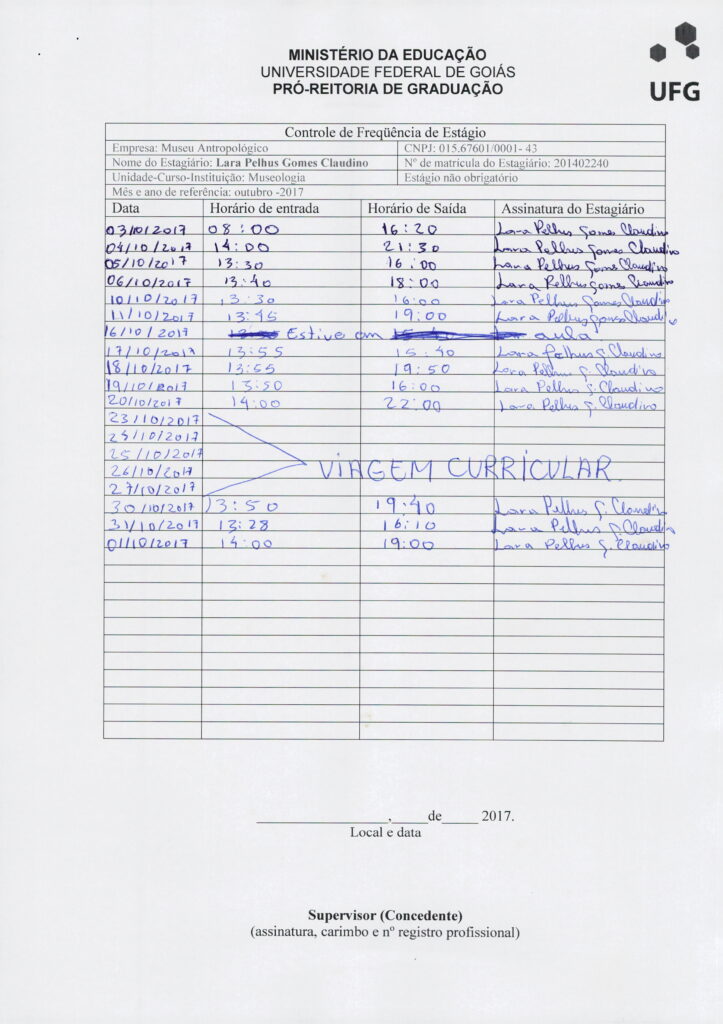 MINISTÉRIO DA EDUCAÇÃO
UNIVERSIDADE FEDERAL DE GOIÁS
PRÓ-REITORIA DE GRADUAÇÃO
UFG
Controle de Freqüência de Estágio
Empresa: Museu Antropológico CNPJ: 015.67601/0001- 43
Nome do Estagiário: Lara Pelhus Gomes Claudino Nº de matrícula do Estagiário: 201402240
Unidade-Curso-Instituição: Museologia Estágio não obrigatório
Mês e ano de referência: outubro -2017
Data Horário de entrada Horário de Saída Assinatura do Estagiário
03/10/2017 08:00 16:20 Lara Pelhus Gomes Claudino
04/10/2017 14:00 21:30 Lara Pelhus Gomes Claudino
05/10/2017 13:30 16:00 Lara Pelhus Gomes Claudino
06/10/2017 13:40 18:00 Lara Pelhus Gomes Claudino
10/10/2017 13:30 16:00 Lara Pelhus Gomes Claudino
11/10/2017 13:45 19:00 Lara Pelhus Gomes Claudino
16/10/2017 Estive em aula
17/10/2017 13:55 15:40 Lara Pelhus G. Claudino
18/10/2017 13:55 19:50 Lara Pelhus G. Claudino
19/10/2017 13:50 16:00 Lara Pelhus G. Claudino
20/10/2017 14:00 22:00 Lara Pelhus G. Claudino
23/10/2017
24/10/2017
25/10/2017
26/10/2017 VIAGEM CURRICULAR
27/10/2017
30/10/2017 13:50 19:40 Lara Pelhus G. Claudino
31/10/2017 13:28 16:10 Lara Pelhus G. Claudino
01/10/2017 14:00 19:00 Lara Pelhus G. Claudino
___________________,_____de_____ 2017.
Local e data
Supervisor (Concedente)
(assinatura, carimbo e nº registro profissional)